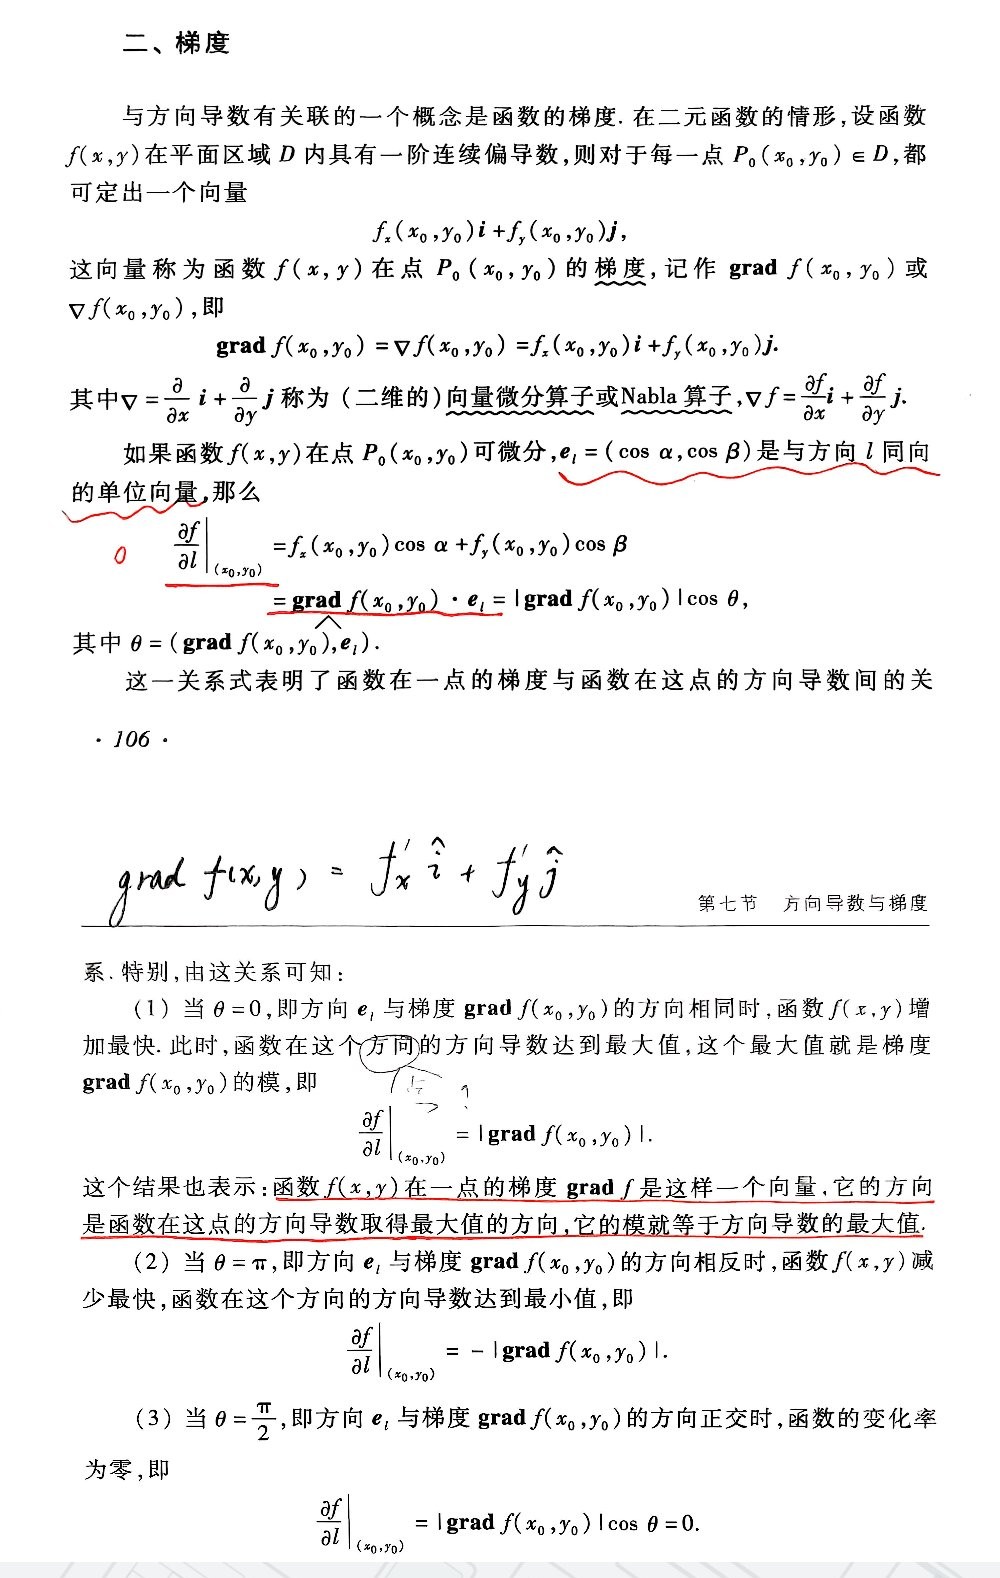 二、梯度
与方向导数有关联的一个概念是函数的梯度. 在二元函数的情形,设函数
f(x,y)在平面区域 D 内具有一阶连续偏导数,则对于每一点 P₀(x₀,y₀)∈D,都
可定出一个向量
fₓ(x₀,y₀)i+f_y(x₀,y₀)j,
这向量称为函数 f(x,y)在点 P₀(x₀,y₀)的梯度,记作 grad f(x₀,y₀)或
∇f(x₀,y₀),即
grad f(x₀,y₀)=∇f(x₀,y₀)=fₓ(x₀,y₀)i+f_y(x₀,y₀)j.
其中∇=∂/∂x i+∂/∂y j称为(二维的)向量微分算子或Nabla 算子,∇f=∂f/∂x i+∂f/∂y j.
如果函数f(x,y)在点 P₀(x₀,y₀)可微分,e_l=(cos α,cos β)是与方向 l 同向
的单位向量,那么
∂f/∂l|(x₀,y₀) =fₓ(x₀,y₀)cos α+f_y(x₀,y₀)cos β
=grad f(x₀,y₀)·e_l=|grad f(x₀,y₀)|cos θ,
其中 θ=(grad f(x₀,y₀),^e_l).
这一关系式表明了函数在一点的梯度与函数在这点的方向导数间的关
·106·
grad f(x,y) = f'ₓ î + f'_y ĵ
第七节 方向导数与梯度
系. 特别,由这关系可知:
(1) 当 θ=0,即方向 e_l 与梯度 grad f(x₀,y₀)的方向相同时,函数 f(x,y)增
加最快. 此时,函数在这个方向的方向导数达到最大值,这个最大值就是梯度
grad f(x₀,y₀)的模,即
∂f/∂l|(x₀,y₀) =|grad f(x₀,y₀)|.
这个结果也表示:函数 f(x,y)在一点的梯度 grad f 是这样一个向量,它的方向
是函数在这点的方向导数取得最大值的方向,它的模就等于方向导数的最大值.
(2) 当 θ=π,即方向 e_l 与梯度 grad f(x₀,y₀)的方向相反时,函数 f(x,y)减
少最快,函数在这个方向的方向导数达到最小值,即
∂f/∂l|(x₀,y₀) =-|grad f(x₀,y₀)|.
(3) 当 θ=π/2,即方向 e_l 与梯度 grad f(x₀,y₀)的方向正交时,函数的变化率
为零,即
∂f/∂l|(x₀,y₀) =|grad f(x₀,y₀)|cos θ=0.